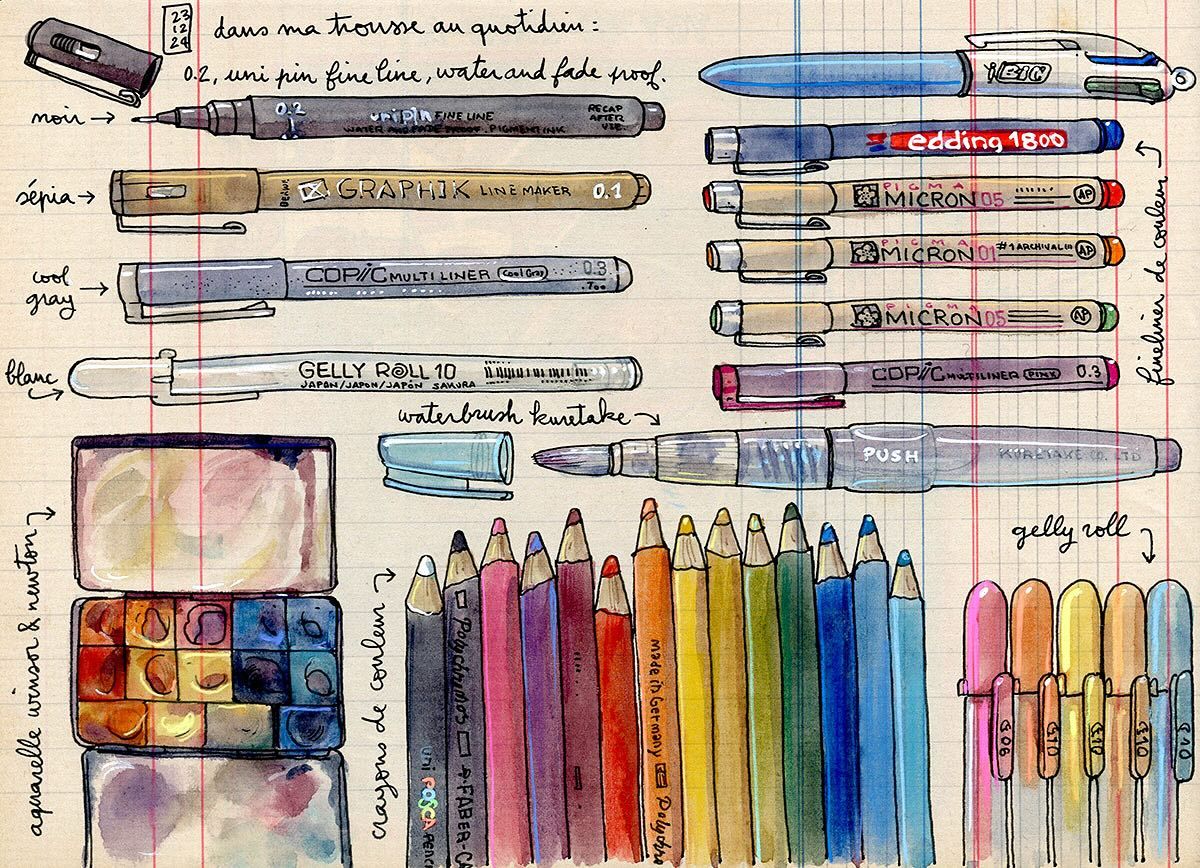 23
12
24
dans ma trousse au quotidien :
0.2, uni pin fine line, water and fade proof.
noir →
0.2 uni pin FINE LINE
WATER AND FADE PROOF. PIGMENT INK
RECAP
AFTER
USE
sépia →
GRAPHIK LINE MAKER 0.1
cool
gray →
COPIC MULTILINER Cool Gray 0.3
blanc
GELLY ROLL 10
JAPAN/JAPON/JAPÓN SAKURA
BIC
edding 1800
PIGMA
MICRON 05
AP
PIGMA
MICRON 01
#1 ARCHIVAL
AP
PIGMA
MICRON 05
AP
COPIC MULTILINER PINK 0.3
fineliner de couleur →
waterbrush kuretake
PUSH
KURETAKE CO. LTD
aquarelle winsor & newton
crayons de couleur
uni POSCA
Polychromos
A.FABER-CA
made in Germany
Polychro
gelly roll
G 06
G10
G10
G10
G10